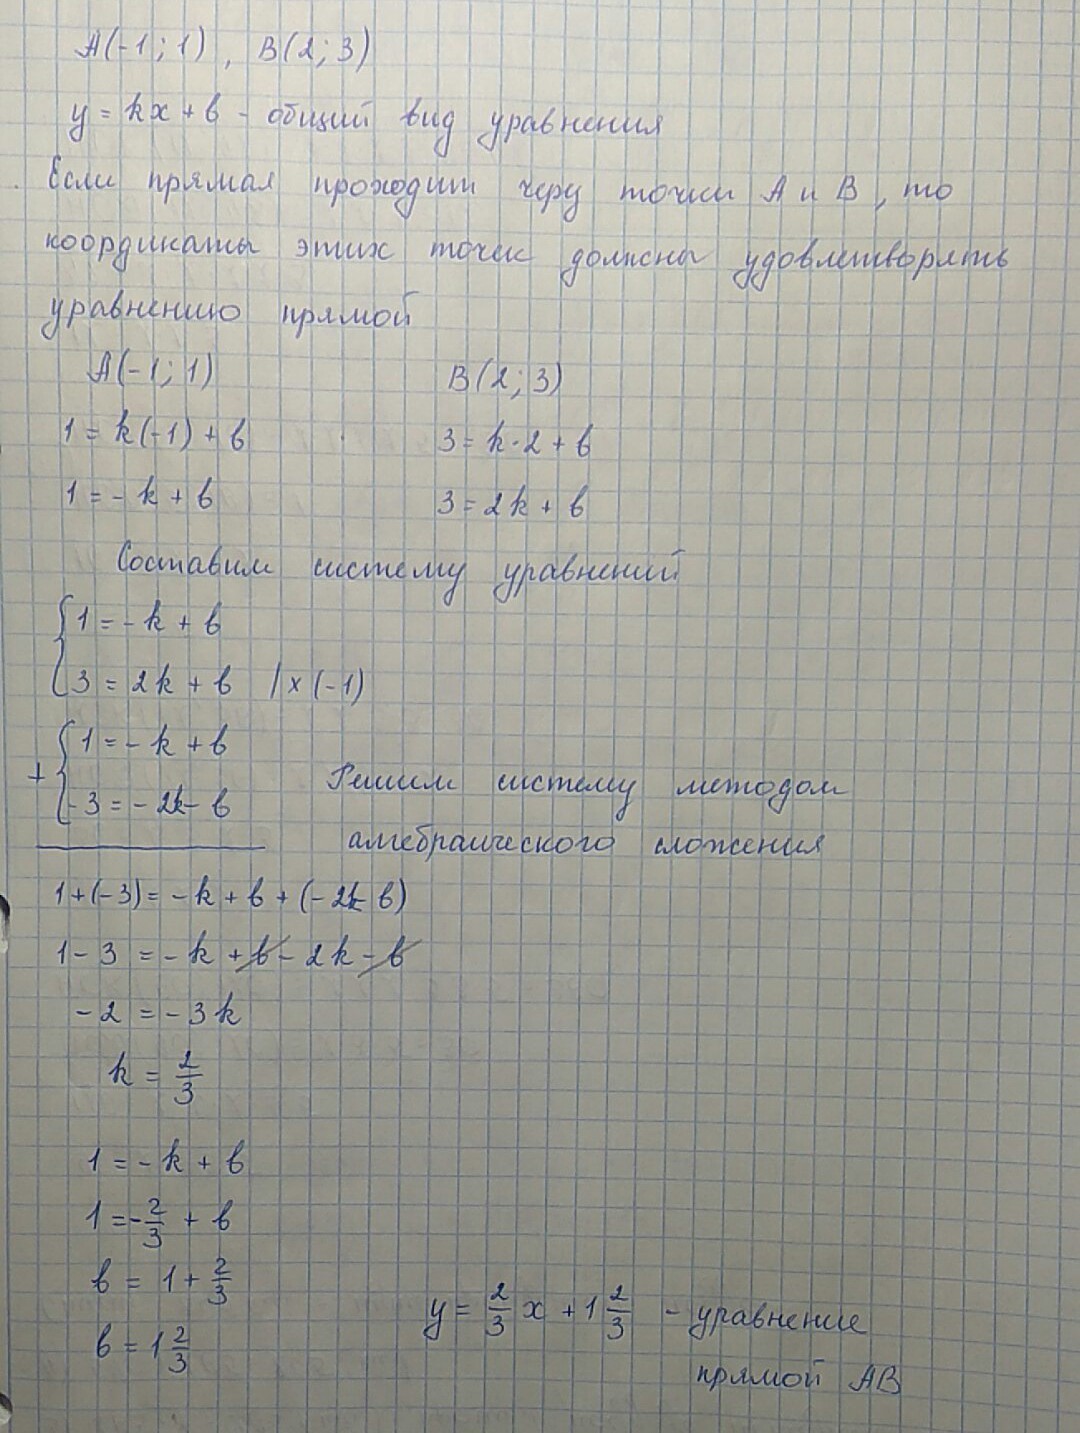 А(-1; 1), В(2; 3)
y = kx + b - общий вид уравнения
Если прямая проходит через точки А и В, то
координаты этих точек должны удовлетворять
уравнению прямой
А(-1; 1) В(2; 3)
1 = k(-1) + b 3 = k·2 + b
1 = - k + b 3 = 2k + b
Составим систему уравнений
{ 1 = - k + b
3 = 2k + b / × (-1)
+ { 1 = - k + b
-3 = - 2k - b
Решим систему методом
алгебраического сложения
1 + (-3) = - k + b + (- 2k - b)
1 - 3 = - k + b - 2k - b
- 2 = - 3k
k = 2/3
1 = - k + b
1 = - 2/3 + b
b = 1 + 2/3
b = 1 2/3
y = 2/3 x + 1 2/3 - уравнение
прямой АВ